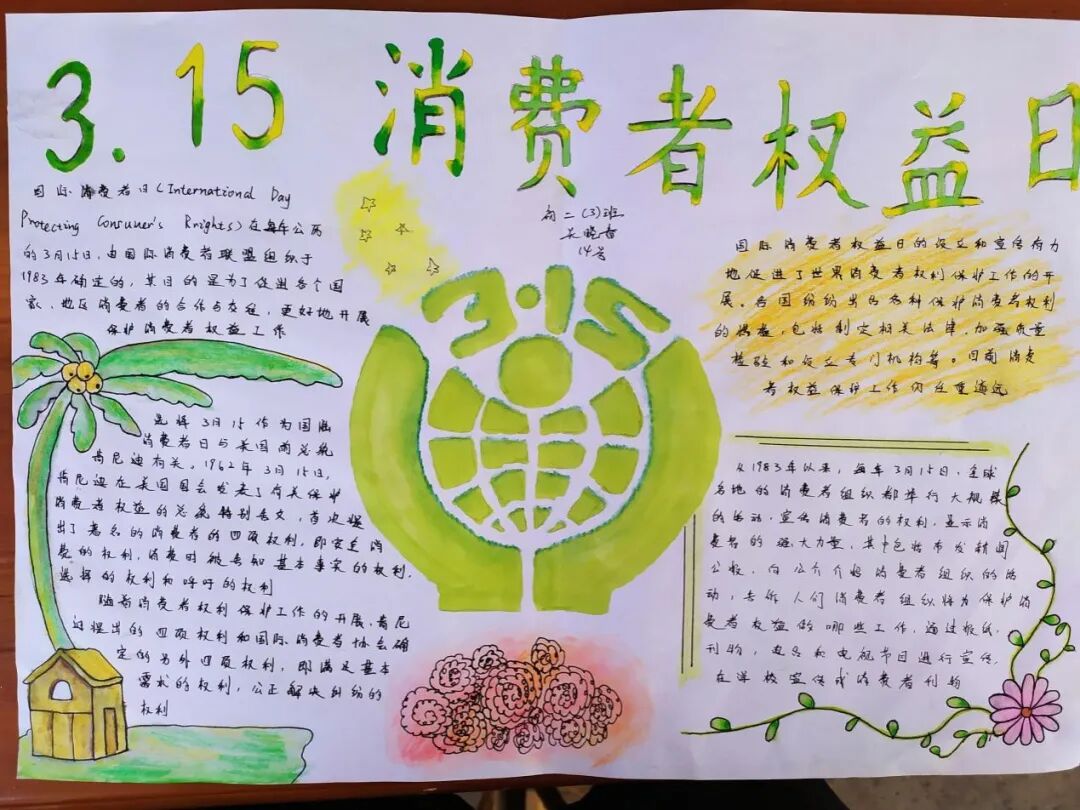 3.15消费者权益日
国际消费者日(International Day
Protecting Consumer's Rnights)在每年公历
的3月15日,由国际消费者联盟组织于
1983年确定的,其目的是为了促进各个国
家、地区消费者的合作与交往,更好地开展
保护消费者权益工作
选择3月15作为国际
消费者日与美国前总统
肯尼迪有关。1962年3月15日,
肯尼迪在美国国会发表了有关保护
消费者权益的总统特别咨文,首次提
出了著名的消费者的四项权利,即安全消
费的权利,消费时被告知基本事实的权利,
选择的权利和呼吁的权利
随着消费者权利保护工作的开展,肯尼
迪提出的四项权利和国际消费者协会确
定的另外四项权利,即满足基本
需求的权利,公正解决纠纷的
权利
初二(3)班
晓香
14号
3·15
国际消费者权益日的设立和宣传有力
地促进了世界消费者权利保护工作的开
展。各国纷纷出台各种保护消费者权利
的措施,包括制定相关法律,加强质量
检验和设立专门机构等。目前消费
者权益保护工作仍任重道远
从1983年以来,每年3月15日,全球
各地的消费者组织都举行大规模
的活动,宣传消费者的权利,显示消
费者的强大力量,其中包括布发新闻
公报,向公介介绍消费者组织的活
动,告诉人们消费者组织将为保护消
费者权益做哪些工作,通过报纸,
刊物,电台和电视节目进行宣传,
在学校宣传或消费者刊物